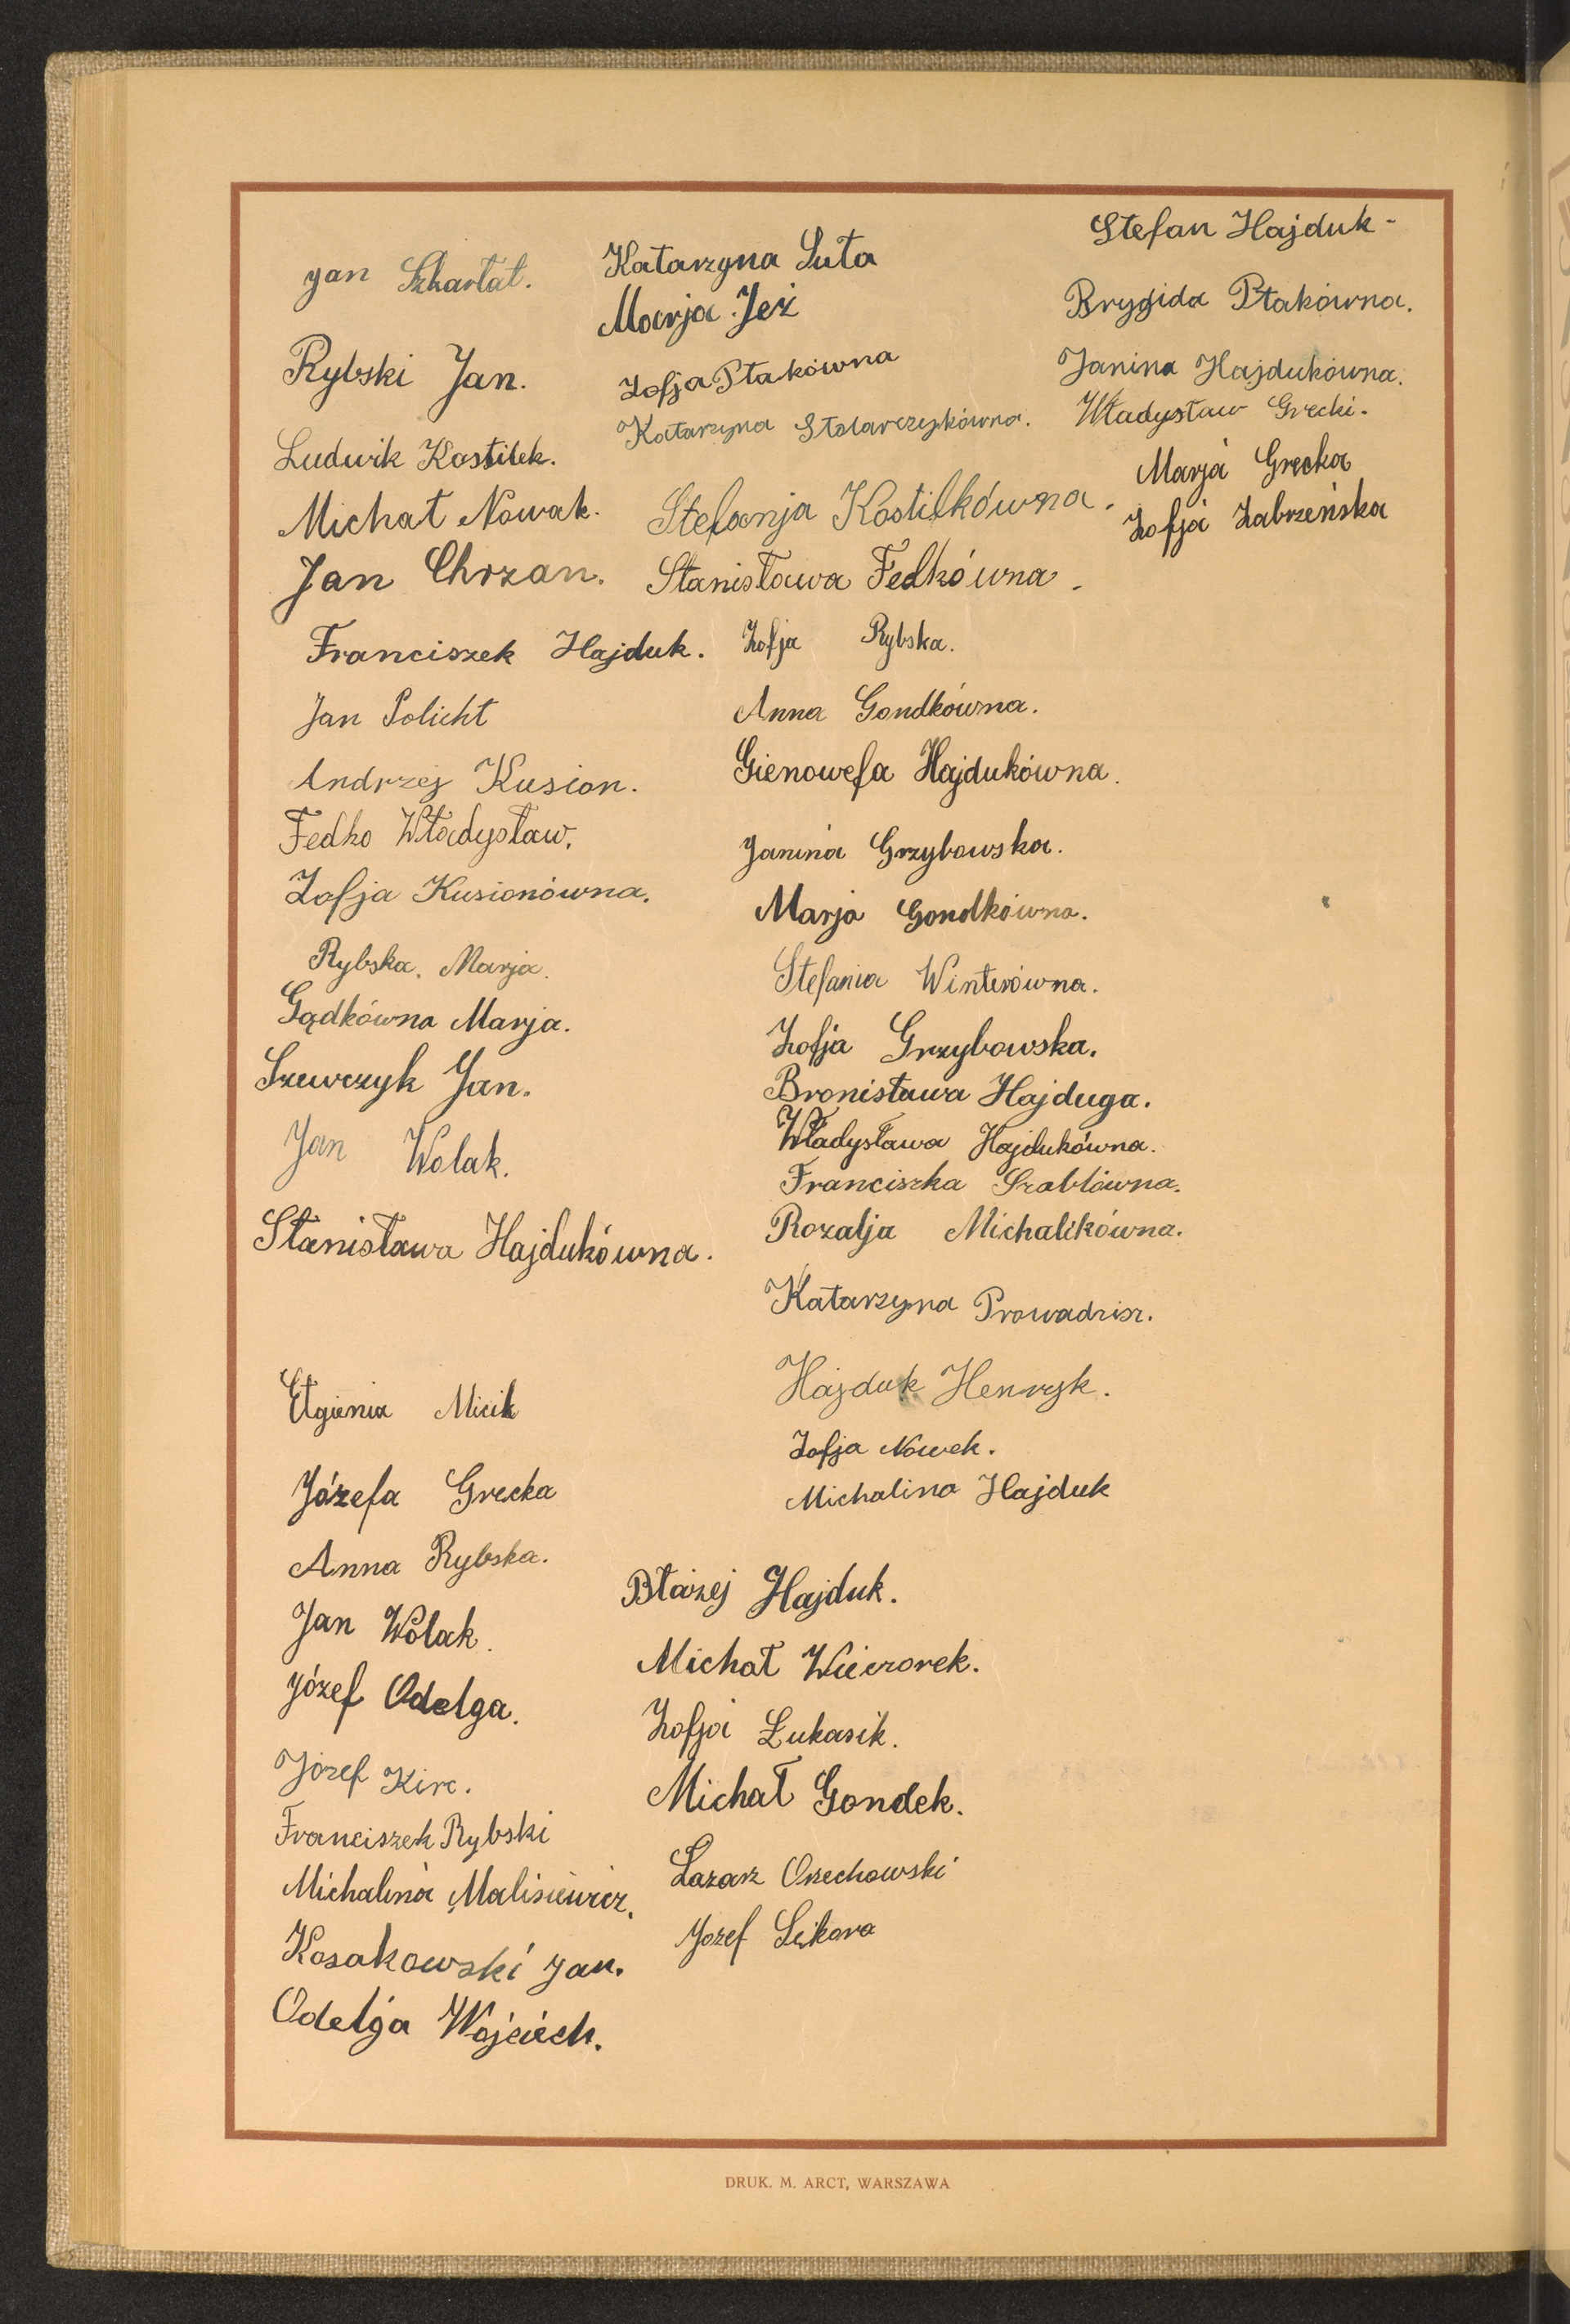 Jan Szkarłat.
Rybski Jan.
Ludwik Kostilek.
Michał Nowak.
Jan Chrzan.
Franciszek Hajduk.
Jan Policht
Andrzej Kusion.
Fedko Władysław.
Zofja Kusionówna.
Rybska. Marja.
Gądkówna Marja.
Szewczyk Jan.
Jan Wolak.
Stanisława Hajdukówna.
Micik
Józefa Grecka
Anna Rybska.
Jan Wolak.
Józef Odelga.
Józef Kirc.
Franciszek Rybski
Michalina Malisiewicz.
Kosakowski Jan.
Odelga Wojciech.
Katarzyna Suta
Marja Jeż
Zofja Ptakówna
Katarzyna Stolarczykówna.
Stefanja Kostilkówna.
Stanisława Fedkówna.
Zofja Rybska.
Anna Gondkówna.
Gienowefa Hajdukówna.
Janina Grzybowska.
Marja Gondkówna.
Stefania Winterówna.
Zofja Grzybowska.
Bronisława Hajduga.
Władysława Hajdukówna.
Franciszka Szablówna.
Rozalja Michalikówna.
Katarzyna Prowadzisz.
Hajduk Henryk.
Zofja Nowek.
Michalina Hajduk
Błażej Hajduk.
Michał Wieczorek.
Zofja Łukasik.
Michał Gondek.
Łazarz Orzechowski
Józef
Stefan Hajduk -
Brygida Ptakówna.
Janina Hajdukówna.
Władysław Grecki.
Marja Grecka
Zofja Zabrzeńska
DRUK. M. ARCT, WARSZAWA